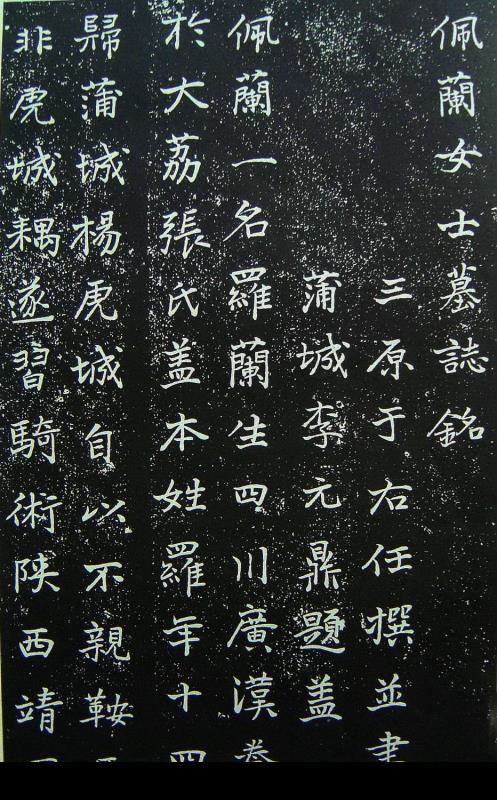 佩蘭女士墓誌銘
三原于右任撰並書
蒲城李元鼎題盖
佩蘭一名羅蘭生四川廣漢
於大荔張氏盖本姓羅年十四
歸蒲城楊虎城自以不親鞍
非虎城耦遂習騎術陝西靖